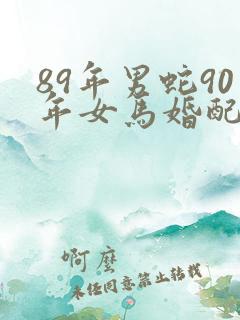 89年男蛇90
年女马婚配
啊麼
未经同意禁止转载